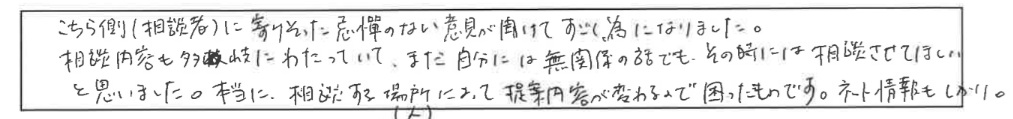 こちら側(相談者)に寄りそった忌憚のない意見が聞けてすごく為になりました。
相談内容も多岐にわたっていて、まだ自分には無関係の話でも、その時には相談させてほしい
と思いました。本当に、相談する場所によって提案内容が変わるので困ったものです。ネット情報もしかり。
(人)